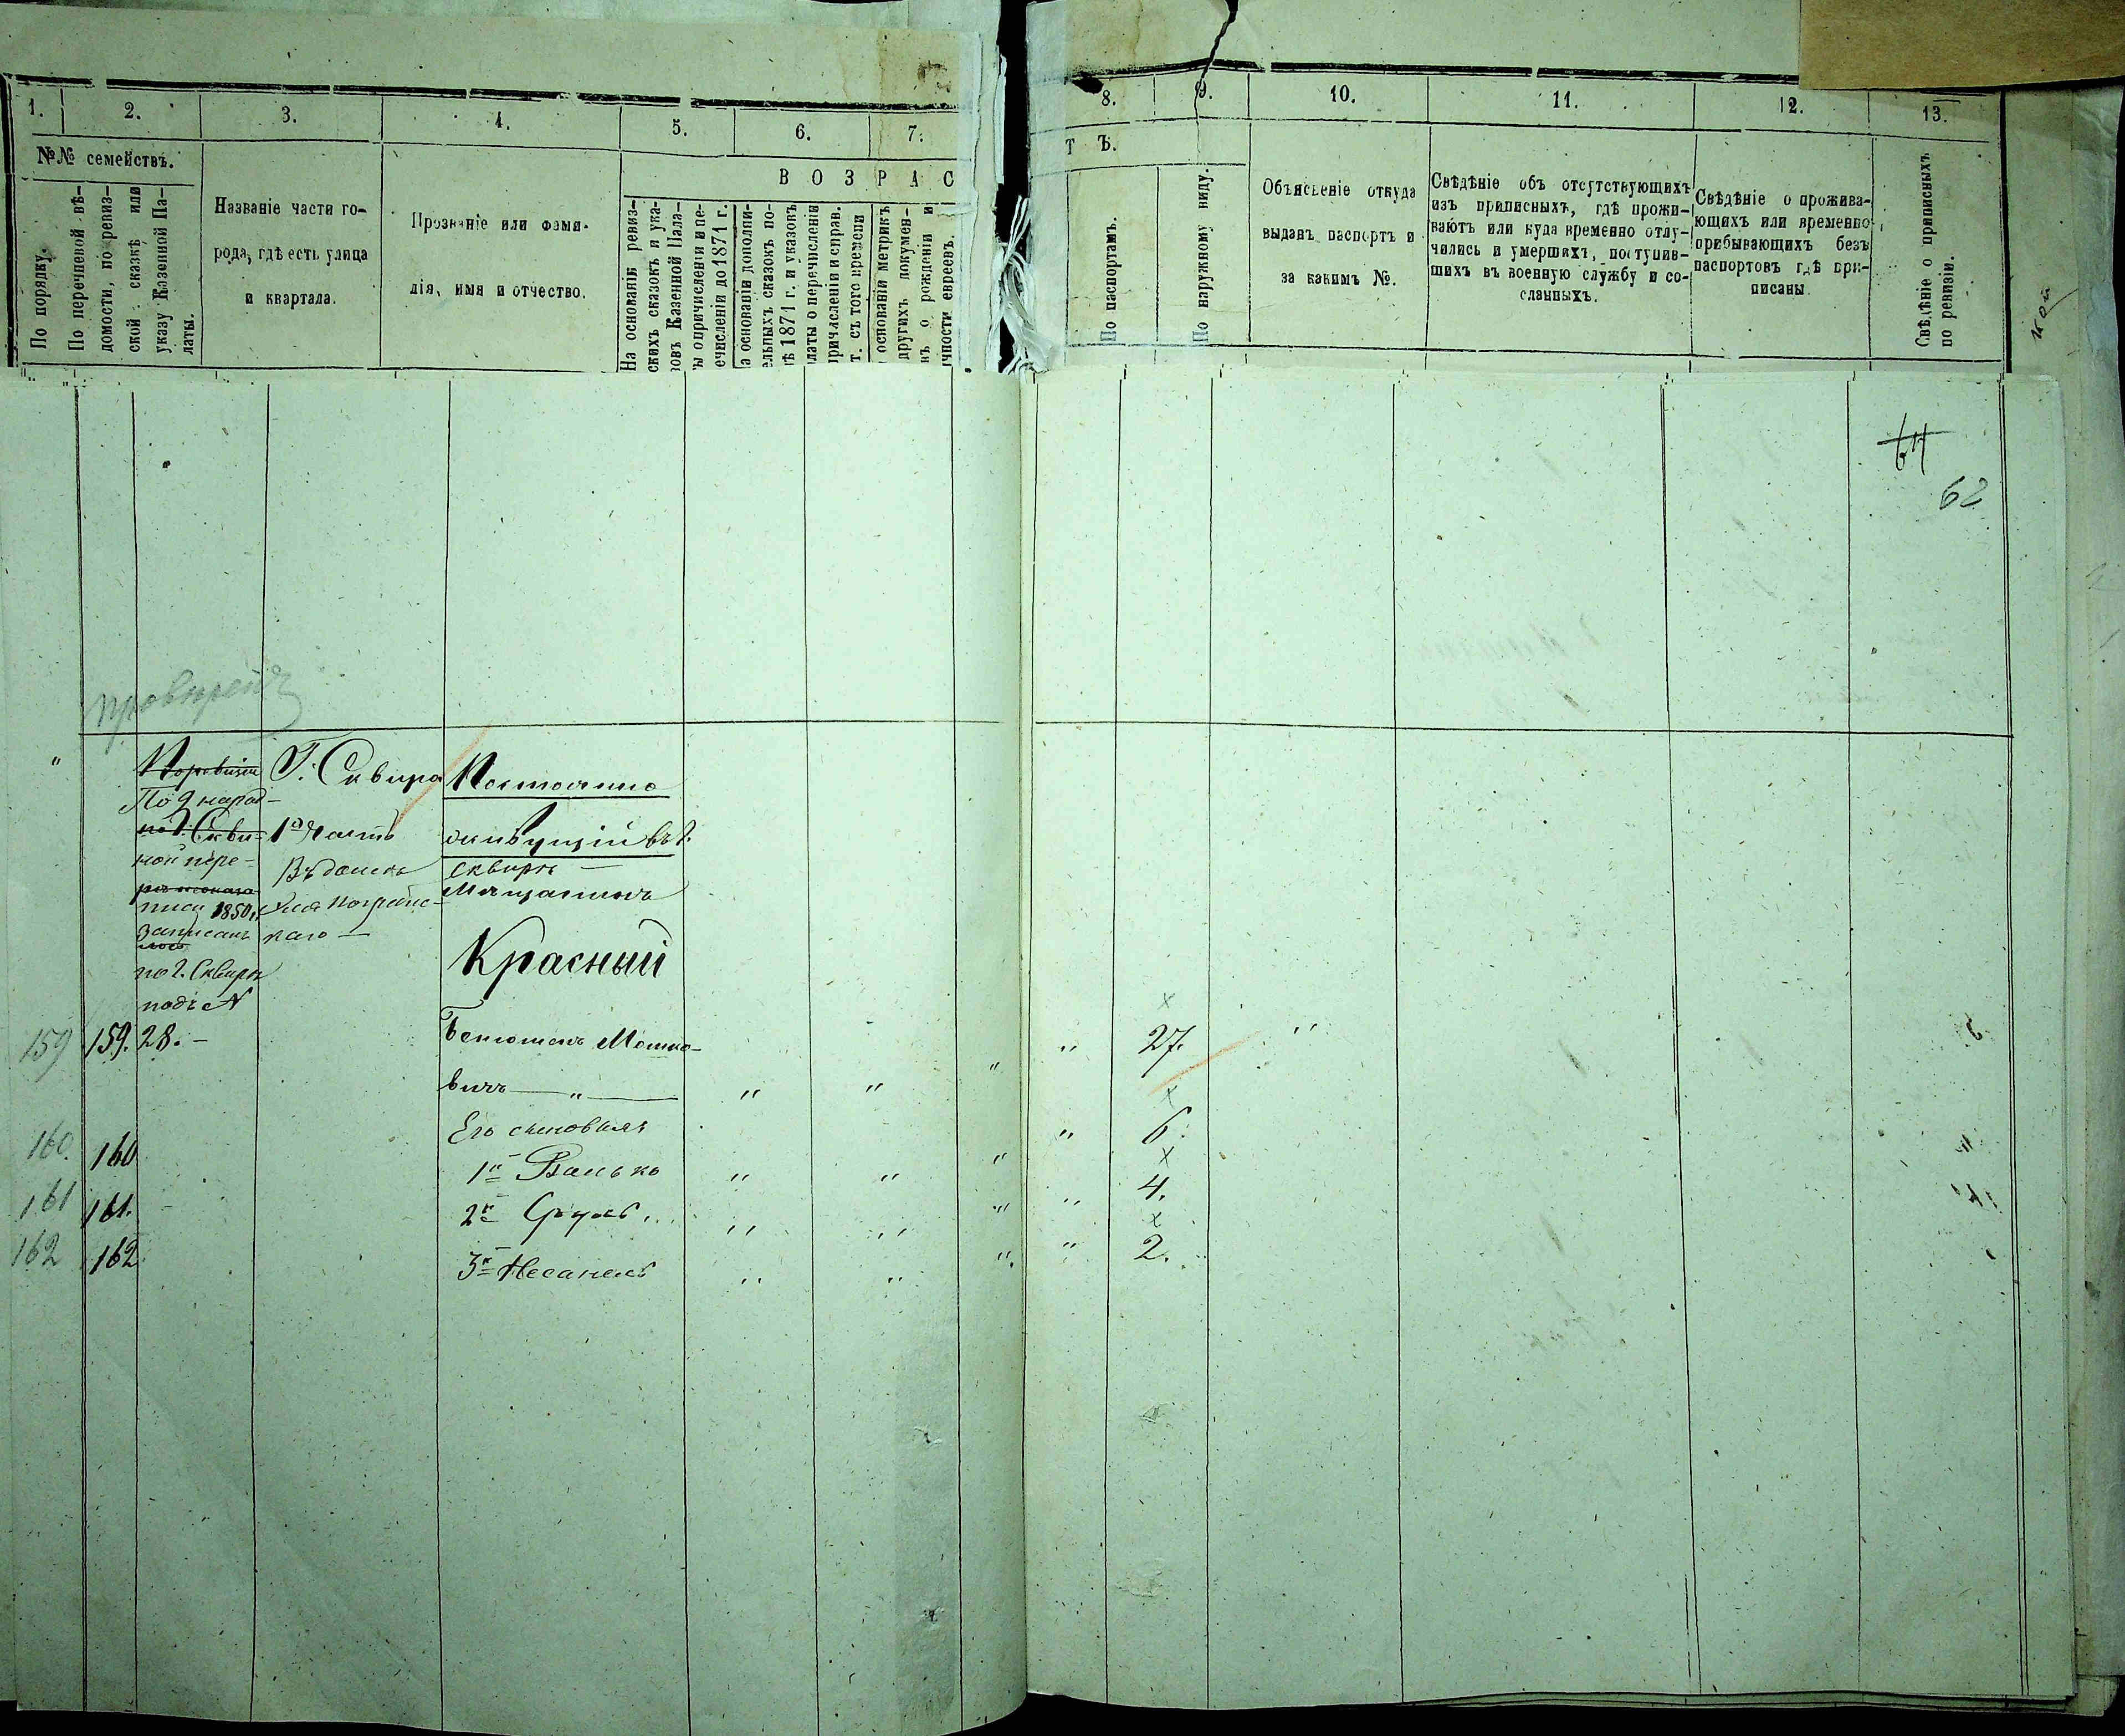 1. 2. 3. 4. 5. 6. 7.
№№ семействъ.
По порядку.
По перечневой вѣ-
домости, по ревиз-
ской сказкѣ или
указу Казенной Па-
латы.
Названіе части го-
рода, гдѣ есть улица
и квартала.
Прозваніе или фами-
лія, имя и отчество.
В О З Р А С
На основаніи ревиз-
скихъ сказокъ и ука-
зовъ Казенной Пала-
ты о причисленіи и пе-
ечисленіи до 1871 г.
а основаніи дополни-
ельныхъ сказокъ по-
ѣ 1871 г. и указокъ
латы о перечисленіи
причисленіи и справ.
т. съ того времени
основаніи метрикъ
другихъ докумен-
нъ о рожденіи и
ичности евреевъ.
8. 9. 10. 11. 12. 13.
Т Ъ.
По паспортамъ.
По наружному виду.
Объясненіе откуда
выданъ паспортъ и
за какимъ №.
Свѣдѣніе объ отсутствующихъ
изъ приписныхъ, гдѣ прожи-
ваютъ или куда временно отлу-
чились и умершихъ, поступив-
шихъ въ военную службу и со-
сланныхъ.
Свѣдѣніе о прожива-
ющихъ или временно
прибывающихъ безъ
паспортовъ гдѣ при-
писаны.
Свѣдѣніе о приписныхъ
по ревизіи.
62
провѣренъ
По ревизіи
по г. Скви-
ной пере-
писи 1850 г.
записанъ
по г. Сквирѣ
подъ №
Г. Сквира
1я часть
Въ домѣ
каго —
Постоянно
живущій въ г.
Сквирѣ —
Мѣщанинъ
Красный
159 159. 28. — Беньюменъ Мошко- " 27. "
вичъ — " — " " "
Его сыновья
160. 160 1й Волько " " " " 6.
161 161. 2й Сруль " " " " 4.
162 162 3й Несанель " " " " 2.